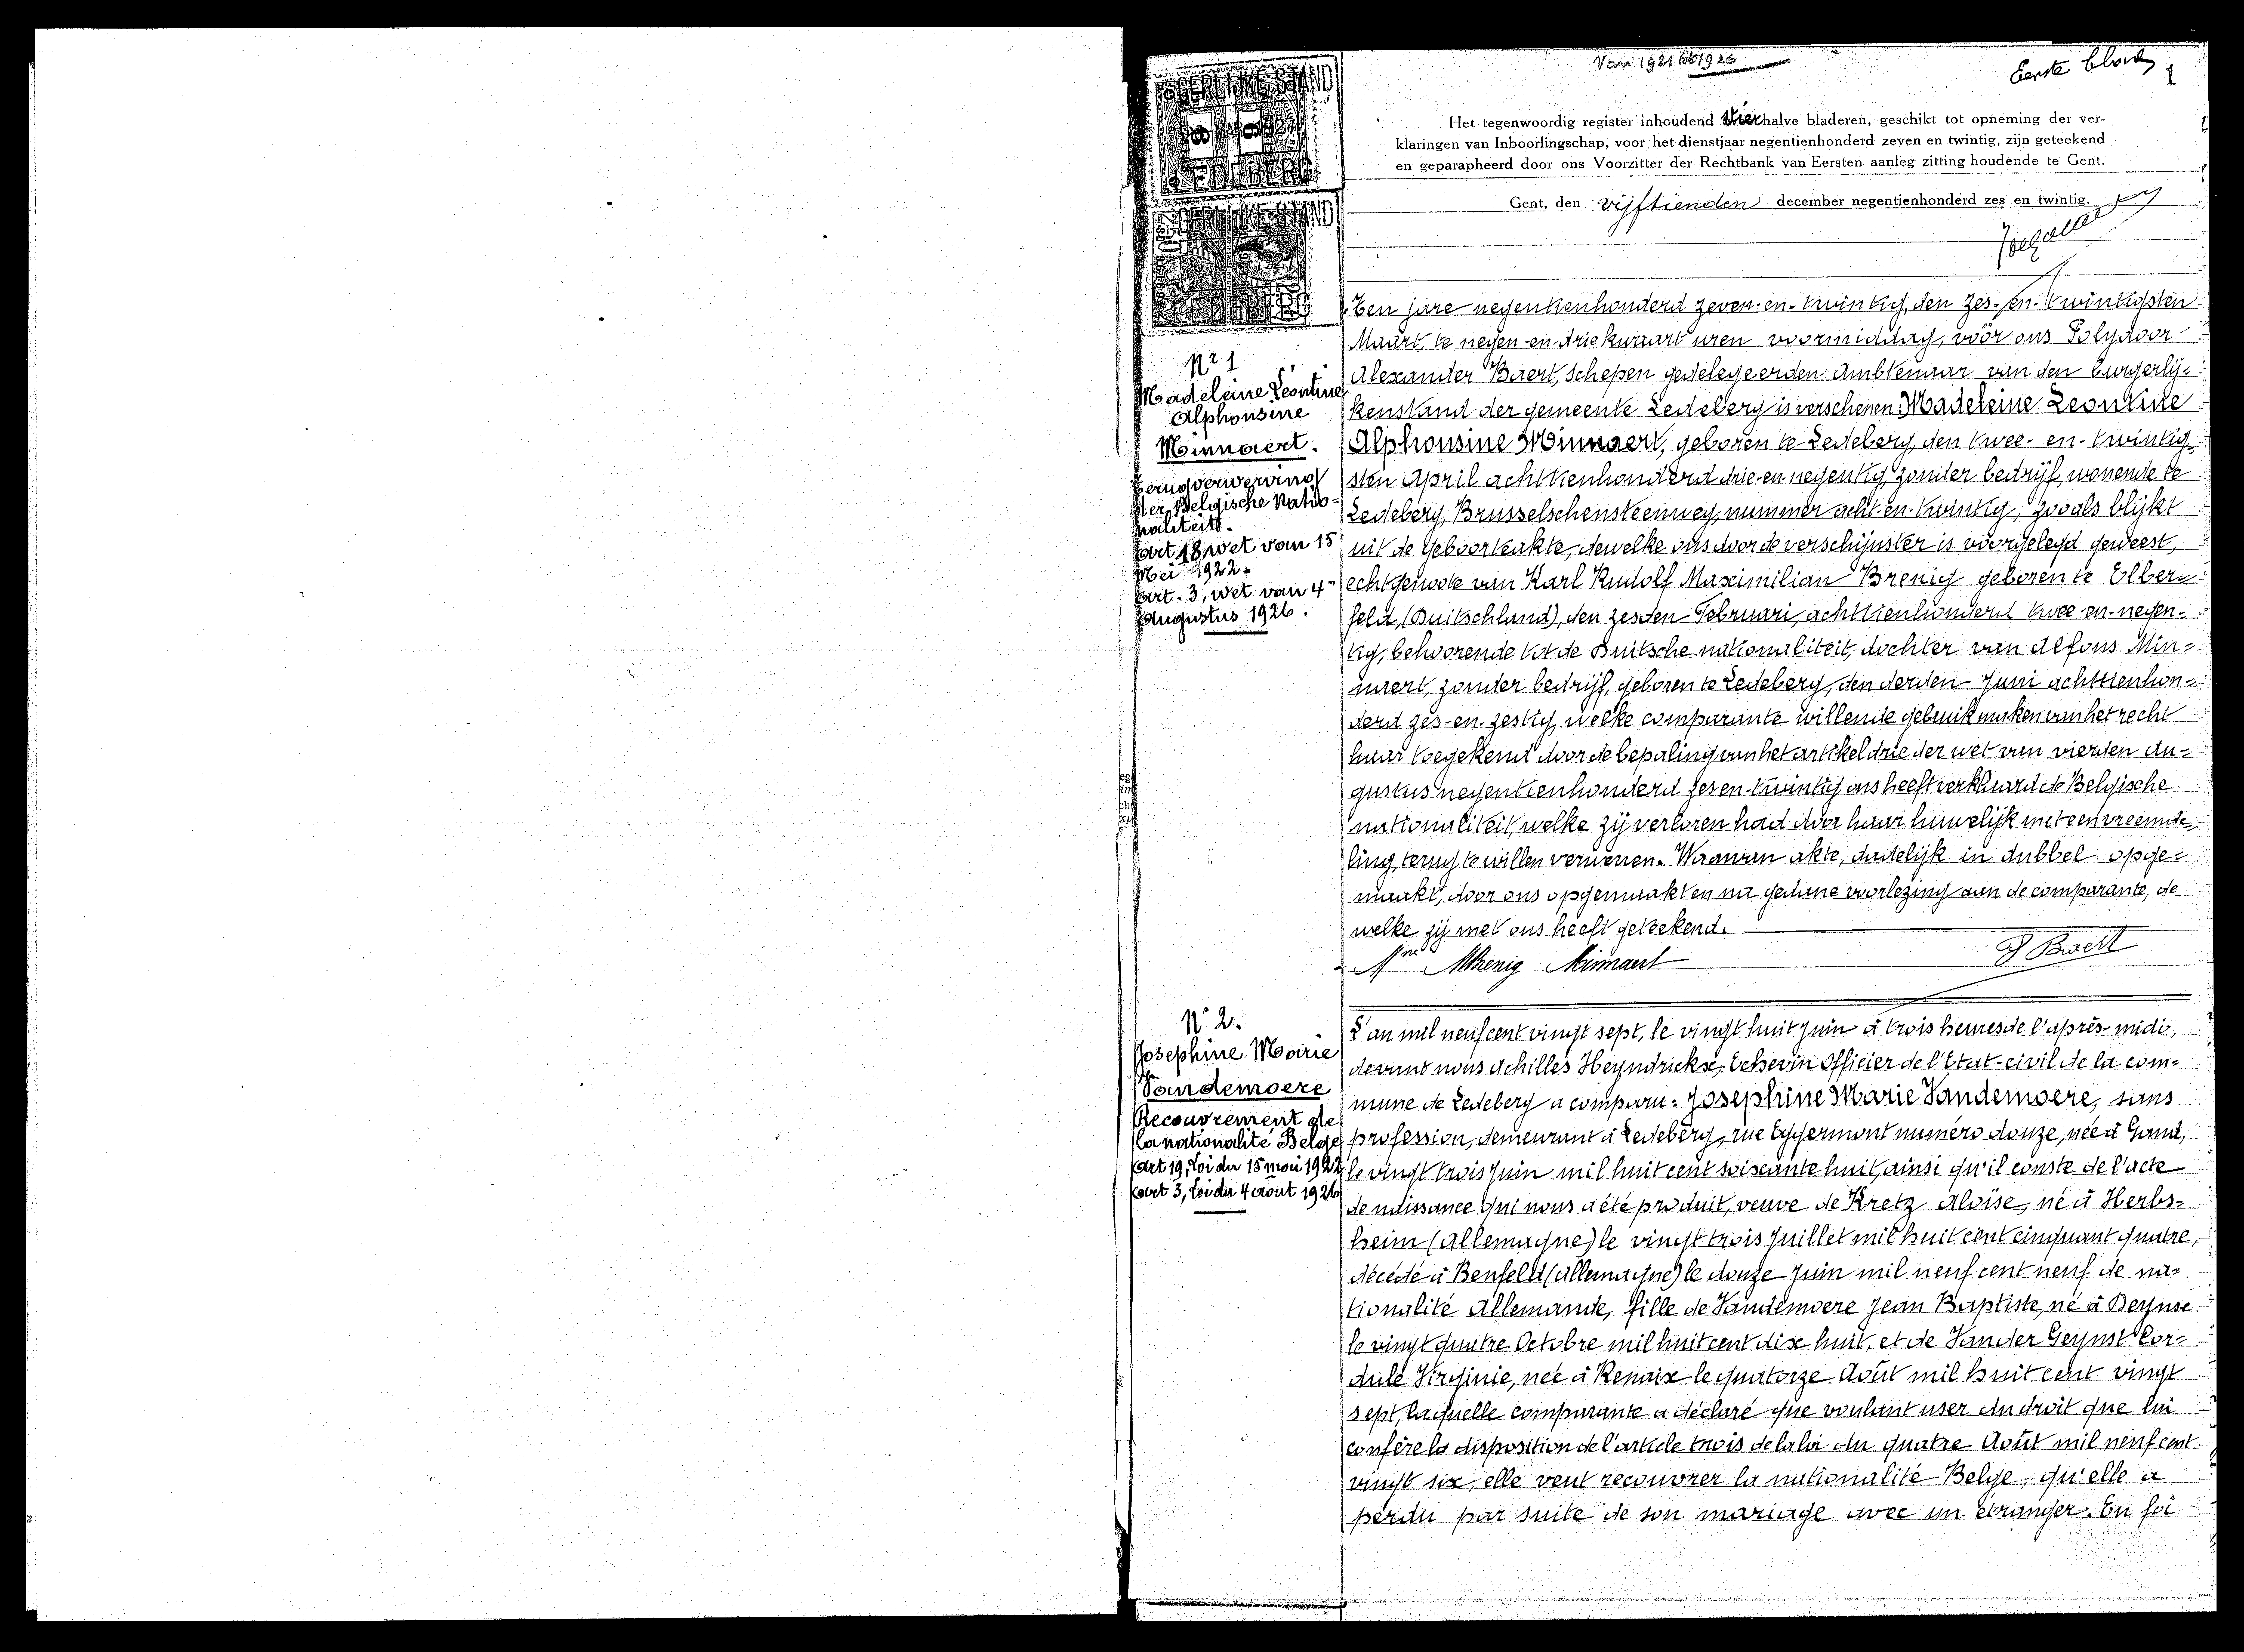 Van 1921 tot 1926
Eerste blad
1
Het tegenwoordig register inhoudend vier halve bladeren, geschikt tot opneming der ver-
klaringen van Inboorlingschap, voor het dienstjaar negentienhonderd zeven en twintig, zijn geteekend
en geparapheerd door ons Voorzitter der Rechtbank van Eersten aanleg zitting houdende te Gent.
Gent, den vijftienden december negentienhonderd zes en twintig.
Nr 1
Madeleine Léontine
Alphonsine
Minnaert.
Terugverwerving
der Belgische Natio-
naliteit.
Art 18 wet van 15
Mei 1922.
Art. 3, wet van 4
Augustus 1926.
Ten jare negentienhonderd zeven-en-twintig, den zes-en-twintigsten
Maart, te negen-en-driekwaart uren voormiddag, vóór ons Polydoor
Alexander Baert, Schepen gedelegeerden Ambtenaar van den burgerlij-
kenstand der gemeente Ledeberg is verschenen: Madeleine Leontine
Alphonsine Minnaert, geboren te Ledeberg, den twee-en-twintig-
sten April achttienhonderd drie-en-negentig, zonder bedrijf, wonende te
Ledeberg, Brusselschensteenweg, nummer acht-en-twintig, zooals blijkt
uit de geboorteakte, dewelke ons door de verschijnster is voorgelegd geweest,
echtgenoote van Karl Rudolf Maximilian Brenig geboren te Elber-
feld, (Duitschland), den zesden Februari, achttienhonderd twee-en-negen-
tig, behoorende tot de Duitsche nationaliteit, dochter van Alfons Min-
naert, zonder bedrijf, geboren te Ledeberg, den derden Juni achttienhon-
derd zes-en-zestig, welke comparante willende gebruik maken van het recht
haar toegekend door de bepaling van het artikel drie der wet van vierden Au-
gustus negentienhonderd zes en twintig ons heeft verklaard de Belgische
nationaliteit, welke zij verloren had door haar huwelijk met een vreemde-
ling, terug te willen verwerven. Waarvan akte, dadelijk in dubbel opge-
maakt, door ons opgemaakt en na gedane voorlezing aan de comparante, de
welke zij met ons heeft geteekend.
Mme MBrenig Minnaert
P Baert
N° 2.
Josephine Marie
Vandemoere
Recouvrement de
la nationalité Belge
Art 19, Loi du 15 mai 1922
Art 3, Loi du 4 aout 1926
L'an mil neuf cent vingt sept, le vingt huit juin à trois heures de l'après-midi,
devant nous Achilles Heyndrickx, Echevin Officier de l'Etat-civil de la com-
mune de Ledeberg a comparu: Josephine Marie Vandemoere, sans
profession, demeurant à Ledeberg, rue Eggermont numéro douze, née à Gand,
le vingt trois juin mil huit cent soixante huit, ainsi qu'il conste de l'acte
de naissance qui nous a été produit, veuve de Kretz Aloïse, né à Herbs-
heim (Allemagne) le vingt trois juillet mil huit cent cinquant quatre,
décédé à Benfeld (Allemagne) le douze juin mil neuf cent neuf de na-
tionalité Allemande, fille de Vandemoere Jean Baptiste, né à Deynse
le vingt quatre Octobre mil huit cent dix huit, et de Vander Geynst Cor-
dule Virginie, née à Renaix le quatorze Août mil huit cent vingt
sept, laquelle comparante a déclaré que voulant user du droit que lui
confère la disposition de l'article trois de la loi du quatre Août mil neuf cent
vingt six, elle veut recouvrer la nationalité Belge, qu'elle a
perdu par suite de son mariage avec un étranger. En foi